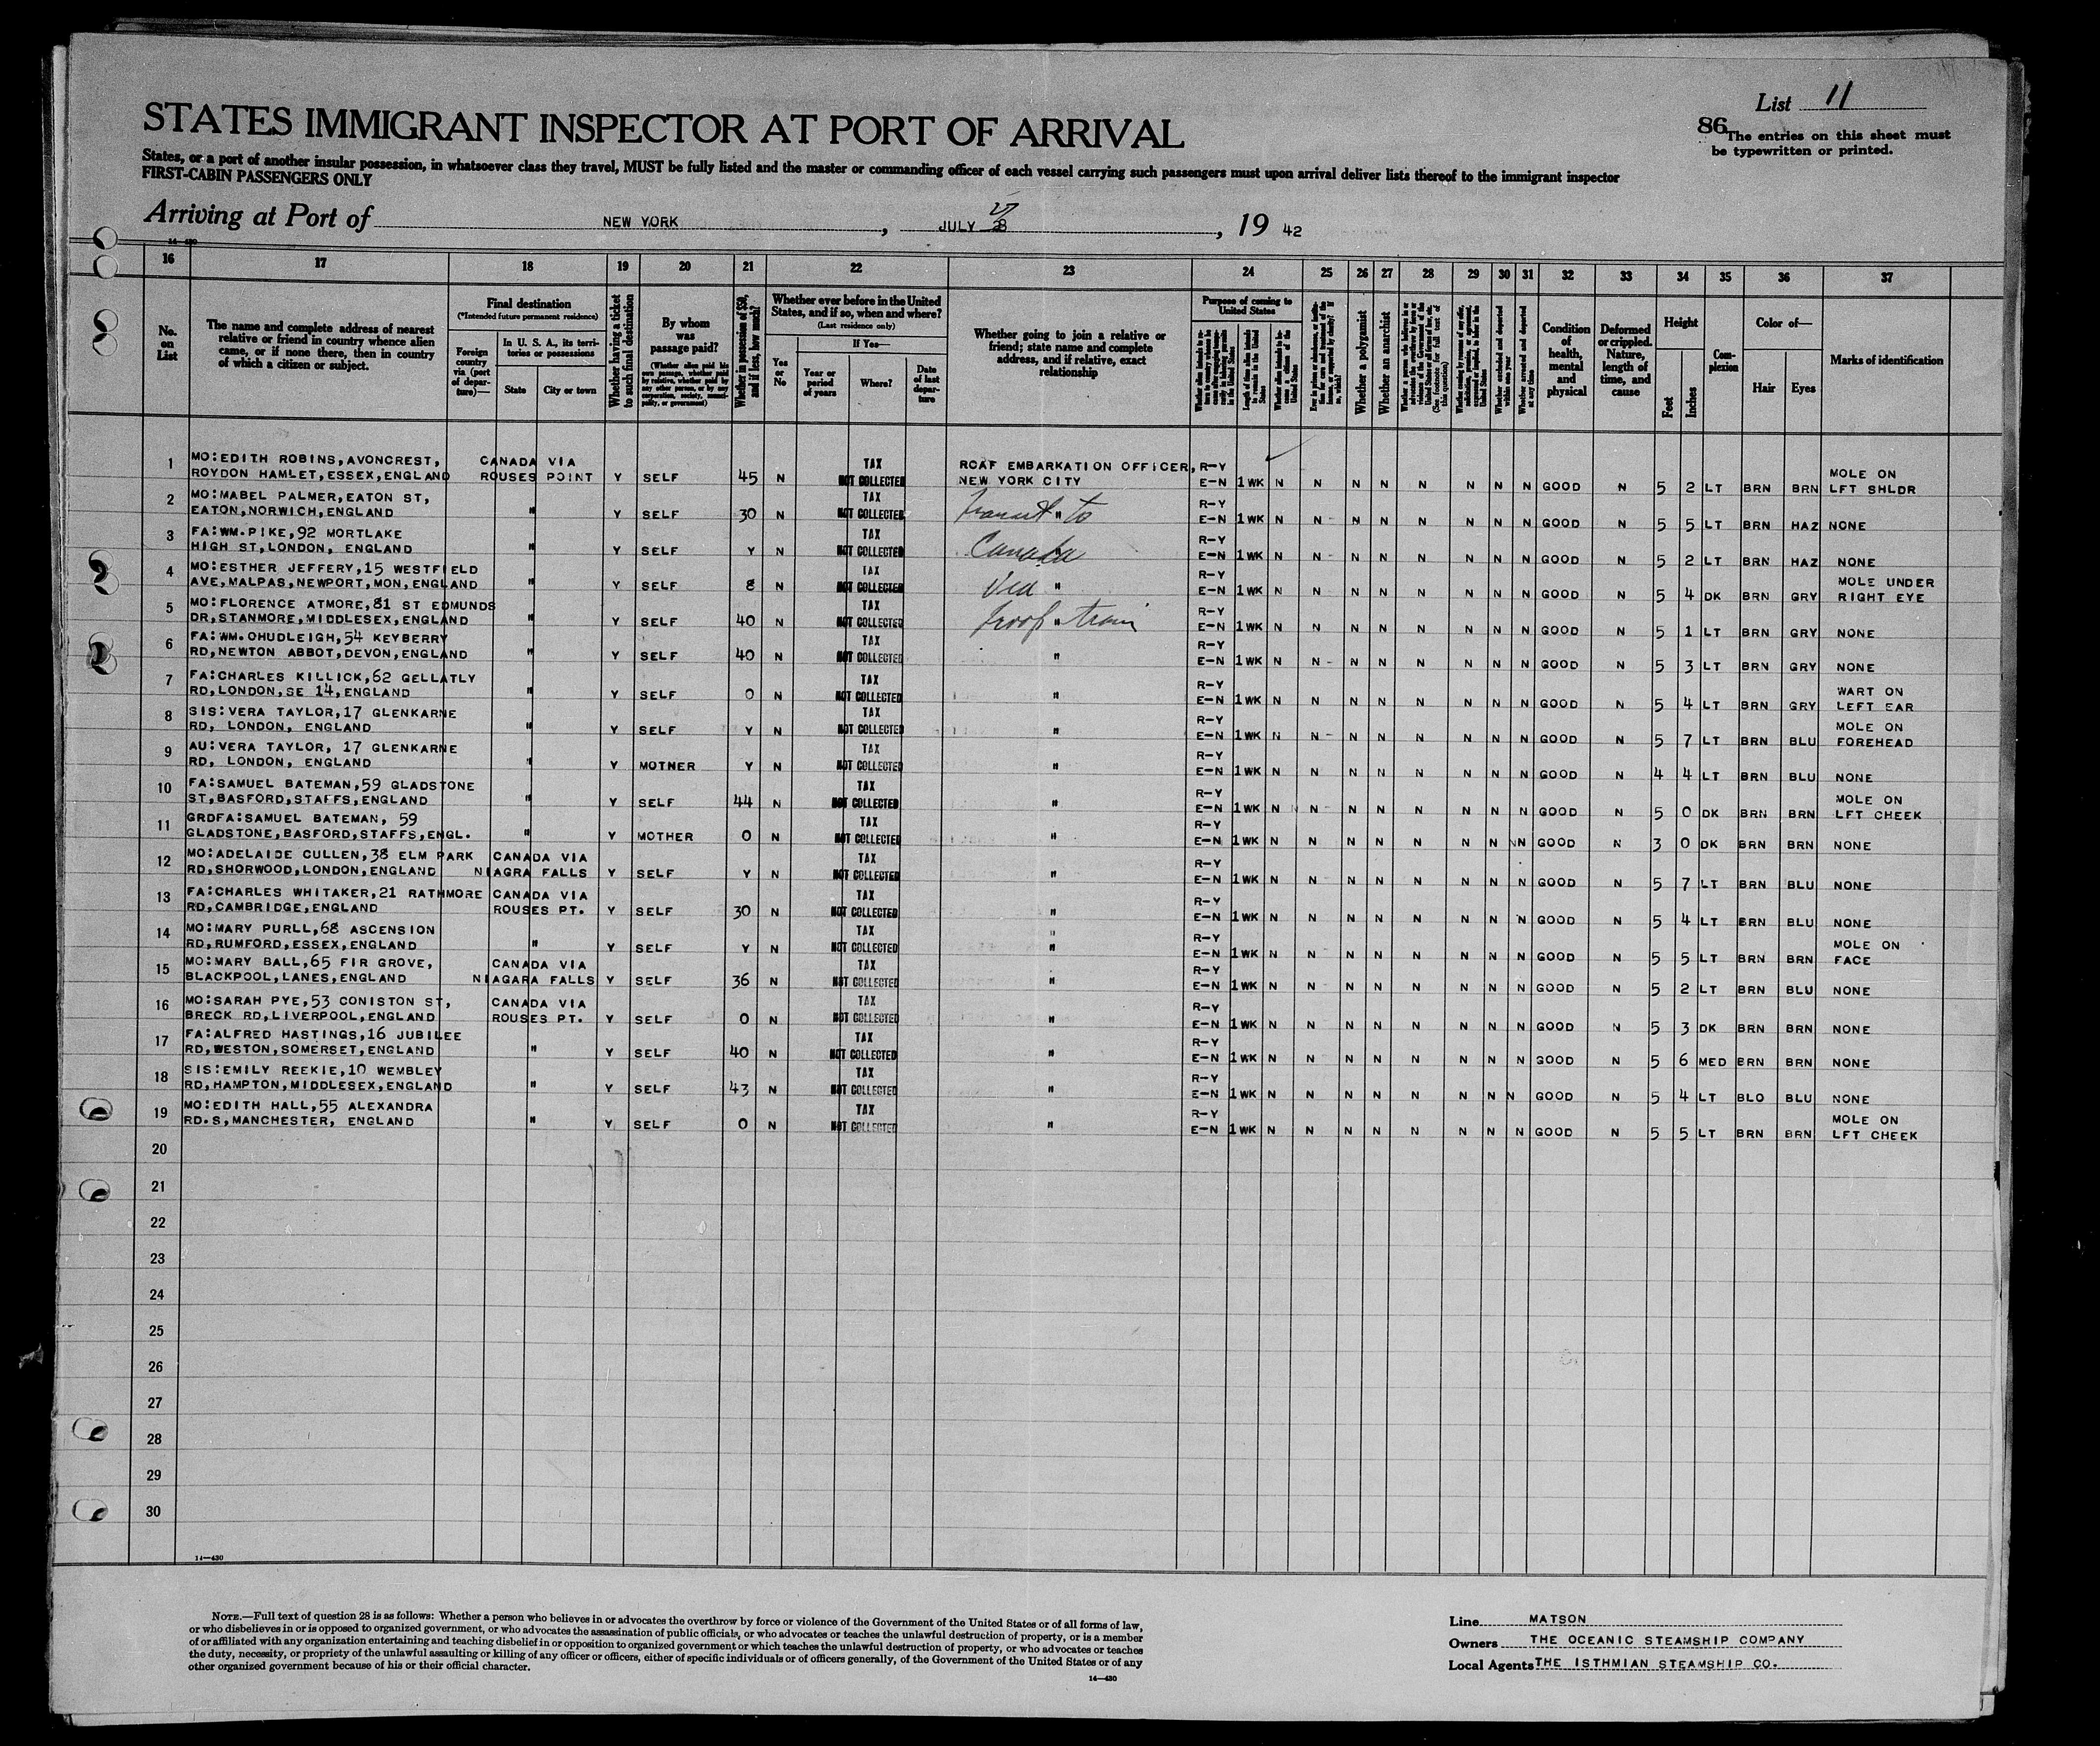 List 11
86 The entries on this sheet must
be typewritten or printed.
STATES IMMIGRANT INSPECTOR AT PORT OF ARRIVAL
States, or a port of another insular possession, in whatsoever class they travel, MUST be fully listed and the master or commanding officer of each vessel carrying such passengers must upon arrival deliver lists thereof to the immigrant inspector
FIRST-CABIN PASSENGERS ONLY
Arriving at Port of NEW YORK, JULY, 19 42
14—430
16 17 18 19 20 21 22 23 24 25 26 27 28 29 30 31 32 33 34 35 36 37
No. on List
The name and complete address of nearest relative or friend in country whence alien came, or if none there, then in country of which a citizen or subject.
Final destination
(*Intended future permanent residence)
Foreign country via (port of departure)—
In U. S. A., its territories or possessions
State
City or town
Whether having a ticket to such final destination
By whom was passage paid?
(Whether alien paid his own passage, whether paid by relative, whether paid by any other person, or by any corporation, society, municipality, or government)
Whether in possession of $50, and if less, how much?
Whether ever before in the United States, and if so, when and where?
(Last residence only)
Yes or No
If Yes—
Year or period of years
Where?
Date of last departure
Whether going to join a relative or friend; state name and complete address, and if relative, exact relationship
Purpose of coming to United States
Whether a polygamist
Whether an anarchist
Condition of health, mental and physical
Deformed or crippled. Nature, length of time, and cause
Height
Feet
Inches
Complexion
Color of—
Hair
Eyes
Marks of identification
1 MO:EDITH ROBINS,AVONCREST, CANADA VIA TAX RCAF EMBARKATION OFFICER, R-Y MOLE ON
ROYDON HAMLET,ESSEX,ENGLAND ROUSES POINT Y SELF 45 N NOT COLLECTED NEW YORK CITY E-N 1WK N N N N N N N N GOOD N 5 2 LT BRN BRN LFT SHLDR
2 MO:MABEL PALMER,EATON ST, TAX R-Y
EATON,NORWICH,ENGLAND " Y SELF 30 N NOT COLLECTED Transit " to E-N 1WK N N N N N N N N GOOD N 5 5 LT BRN HAZ NONE
3 FA:WM.PIKE,92 MORTLAKE TAX R-Y
HIGH ST,LONDON, ENGLAND " Y SELF Y N NOT COLLECTED Canada E-N 1WK N N N N N N N N GOOD N 5 2 LT BRN HAZ NONE
4 MO:ESTHER JEFFERY,15 WESTFIELD TAX R-Y MOLE UNDER
AVE,MALPAS,NEWPORT,MON,ENGLAND " Y SELF 8 N NOT COLLECTED Via " E-N 1WK N N N N N N N N GOOD N 5 4 DK BRN GRY RIGHT EYE
5 MO:FLORENCE ATMORE,81 ST EDMUNDS TAX R-Y
DR,STANMORE,MIDDLESEX,ENGLAND " Y SELF 40 N NOT COLLECTED troop " train E-N 1WK N N N N N N N N GOOD N 5 1 LT BRN GRY NONE
6 FA:WM.OHUDLEIGH,54 KEYBERRY TAX R-Y
RD,NEWTON ABBOT,DEVON,ENGLAND " Y SELF 40 N NOT COLLECTED " E-N 1WK N N N N N N N N GOOD N 5 3 LT BRN GRY NONE
7 FA:CHARLES KILLICK,62 GELLATLY TAX R-Y WART ON
RD,LONDON,SE 14,ENGLAND " Y SELF 0 N NOT COLLECTED " E-N 1WK N N N N N N N N GOOD N 5 4 LT BRN GRY LEFT EAR
8 SIS:VERA TAYLOR,17 GLENKARNE TAX R-Y MOLE ON
RD, LONDON, ENGLAND " Y SELF Y N NOT COLLECTED " E-N 1WK N N N N N N N N GOOD N 5 7 LT BRN BLU FOREHEAD
9 AU:VERA TAYLOR, 17 GLENKARNE TAX R-Y
RD, LONDON, ENGLAND " Y MOTHER Y N NOT COLLECTED " E-N 1WK N N N N N N N N GOOD N 4 4 LT BRN BLU NONE
10 FA:SAMUEL BATEMAN,59 GLADSTONE TAX R-Y MOLE ON
ST,BASFORD,STAFFS,ENGLAND " Y SELF 44 N NOT COLLECTED " E-N 1WK N N N N N N N N GOOD N 5 0 DK BRN BRN LFT CHEEK
11 GRDFA:SAMUEL BATEMAN, 59 TAX R-Y
GLADSTONE,BASFORD,STAFFS,ENGL. " Y MOTHER 0 N NOT COLLECTED " E-N 1WK N N N N N N N N GOOD N 3 0 DK BRN BRN NONE
12 MO:ADELAIDE CULLEN,38 ELM PARK CANADA VIA TAX R-Y
RD,SHORWOOD,LONDON,ENGLAND NIAGRA FALLS Y SELF Y N NOT COLLECTED " E-N 1WK N N N N N N N N GOOD N 5 7 LT BRN BLU NONE
13 FA:CHARLES WHITAKER,21 RATHMORE CANADA VIA TAX R-Y
RD,CAMBRIDGE,ENGLAND ROUSES PT. Y SELF 30 N NOT COLLECTED " E-N 1WK N N N N N N N N GOOD N 5 4 LT BRN BLU NONE
14 MO:MARY PURLL,68 ASCENSION TAX " R-Y MOLE ON
RD,RUMFORD,ESSEX,ENGLAND " Y SELF Y N NOT COLLECTED " E-N 1WK N N N N N N N N GOOD N 5 5 LT BRN BRN FACE
15 MO:MARY BALL,65 FIR GROVE, CANADA VIA TAX R-Y
BLACKPOOL,LANES,ENGLAND NIAGARA FALLS Y SELF 36 N NOT COLLECTED " E-N 1WK N N N N N N N N GOOD N 5 2 LT BRN BLU NONE
16 MO:SARAH PYE,53 CONISTON ST, CANADA VIA TAX R-Y
BRECK RD,LIVERPOOL,ENGLAND ROUSES PT. Y SELF 0 N NOT COLLECTED " E-N 1WK N N N N N N N N GOOD N 5 3 DK BRN BRN NONE
17 FA:ALFRED HASTINGS,16 JUBILEE TAX R-Y
RD,WESTON,SOMERSET,ENGLAND " Y SELF 40 N NOT COLLECTED " E-N 1WK N N N N N N N N GOOD N 5 6 MED BRN BRN NONE
18 SIS:EMILY REEKIE,10 WEMBLEY TAX R-Y
RD,HAMPTON,MIDDLESEX,ENGLAND " Y SELF 43 N NOT COLLECTED " E-N 1WK N N N N N N N N GOOD N 5 4 LT BLO BLU NONE
19 MO:EDITH HALL,55 ALEXANDRA TAX R-Y MOLE ON
RD.S,MANCHESTER, ENGLAND " Y SELF 0 N NOT COLLECTED " E-N 1WK N N N N N N N N GOOD N 5 5 LT BRN BRN LFT CHEEK
20
21
22
23
24
25
26
27
28
29
30
14—430
NOTE.—Full text of question 28 is as follows: Whether a person who believes in or advocates the overthrow by force or violence of the Government of the United States or of all forms of law,
or who disbelieves in or is opposed to organized government, or who advocates the assassination of public officials, or who advocates or teaches the unlawful destruction of property, or is a member
of or affiliated with any organization entertaining and teaching disbelief in or opposition to organized government or which teaches the unlawful destruction of property, or who advocates or teaches
the duty, necessity, or propriety of the unlawful assaulting or killing of any officer or officers, either of specific individuals or of officers generally, of the Government of the United States or of any
other organized government because of his or their official character.
14—430
Line MATSON
Owners THE OCEANIC STEAMSHIP COMPANY
Local Agents THE ISTHMIAN STEAMSHIP CO.